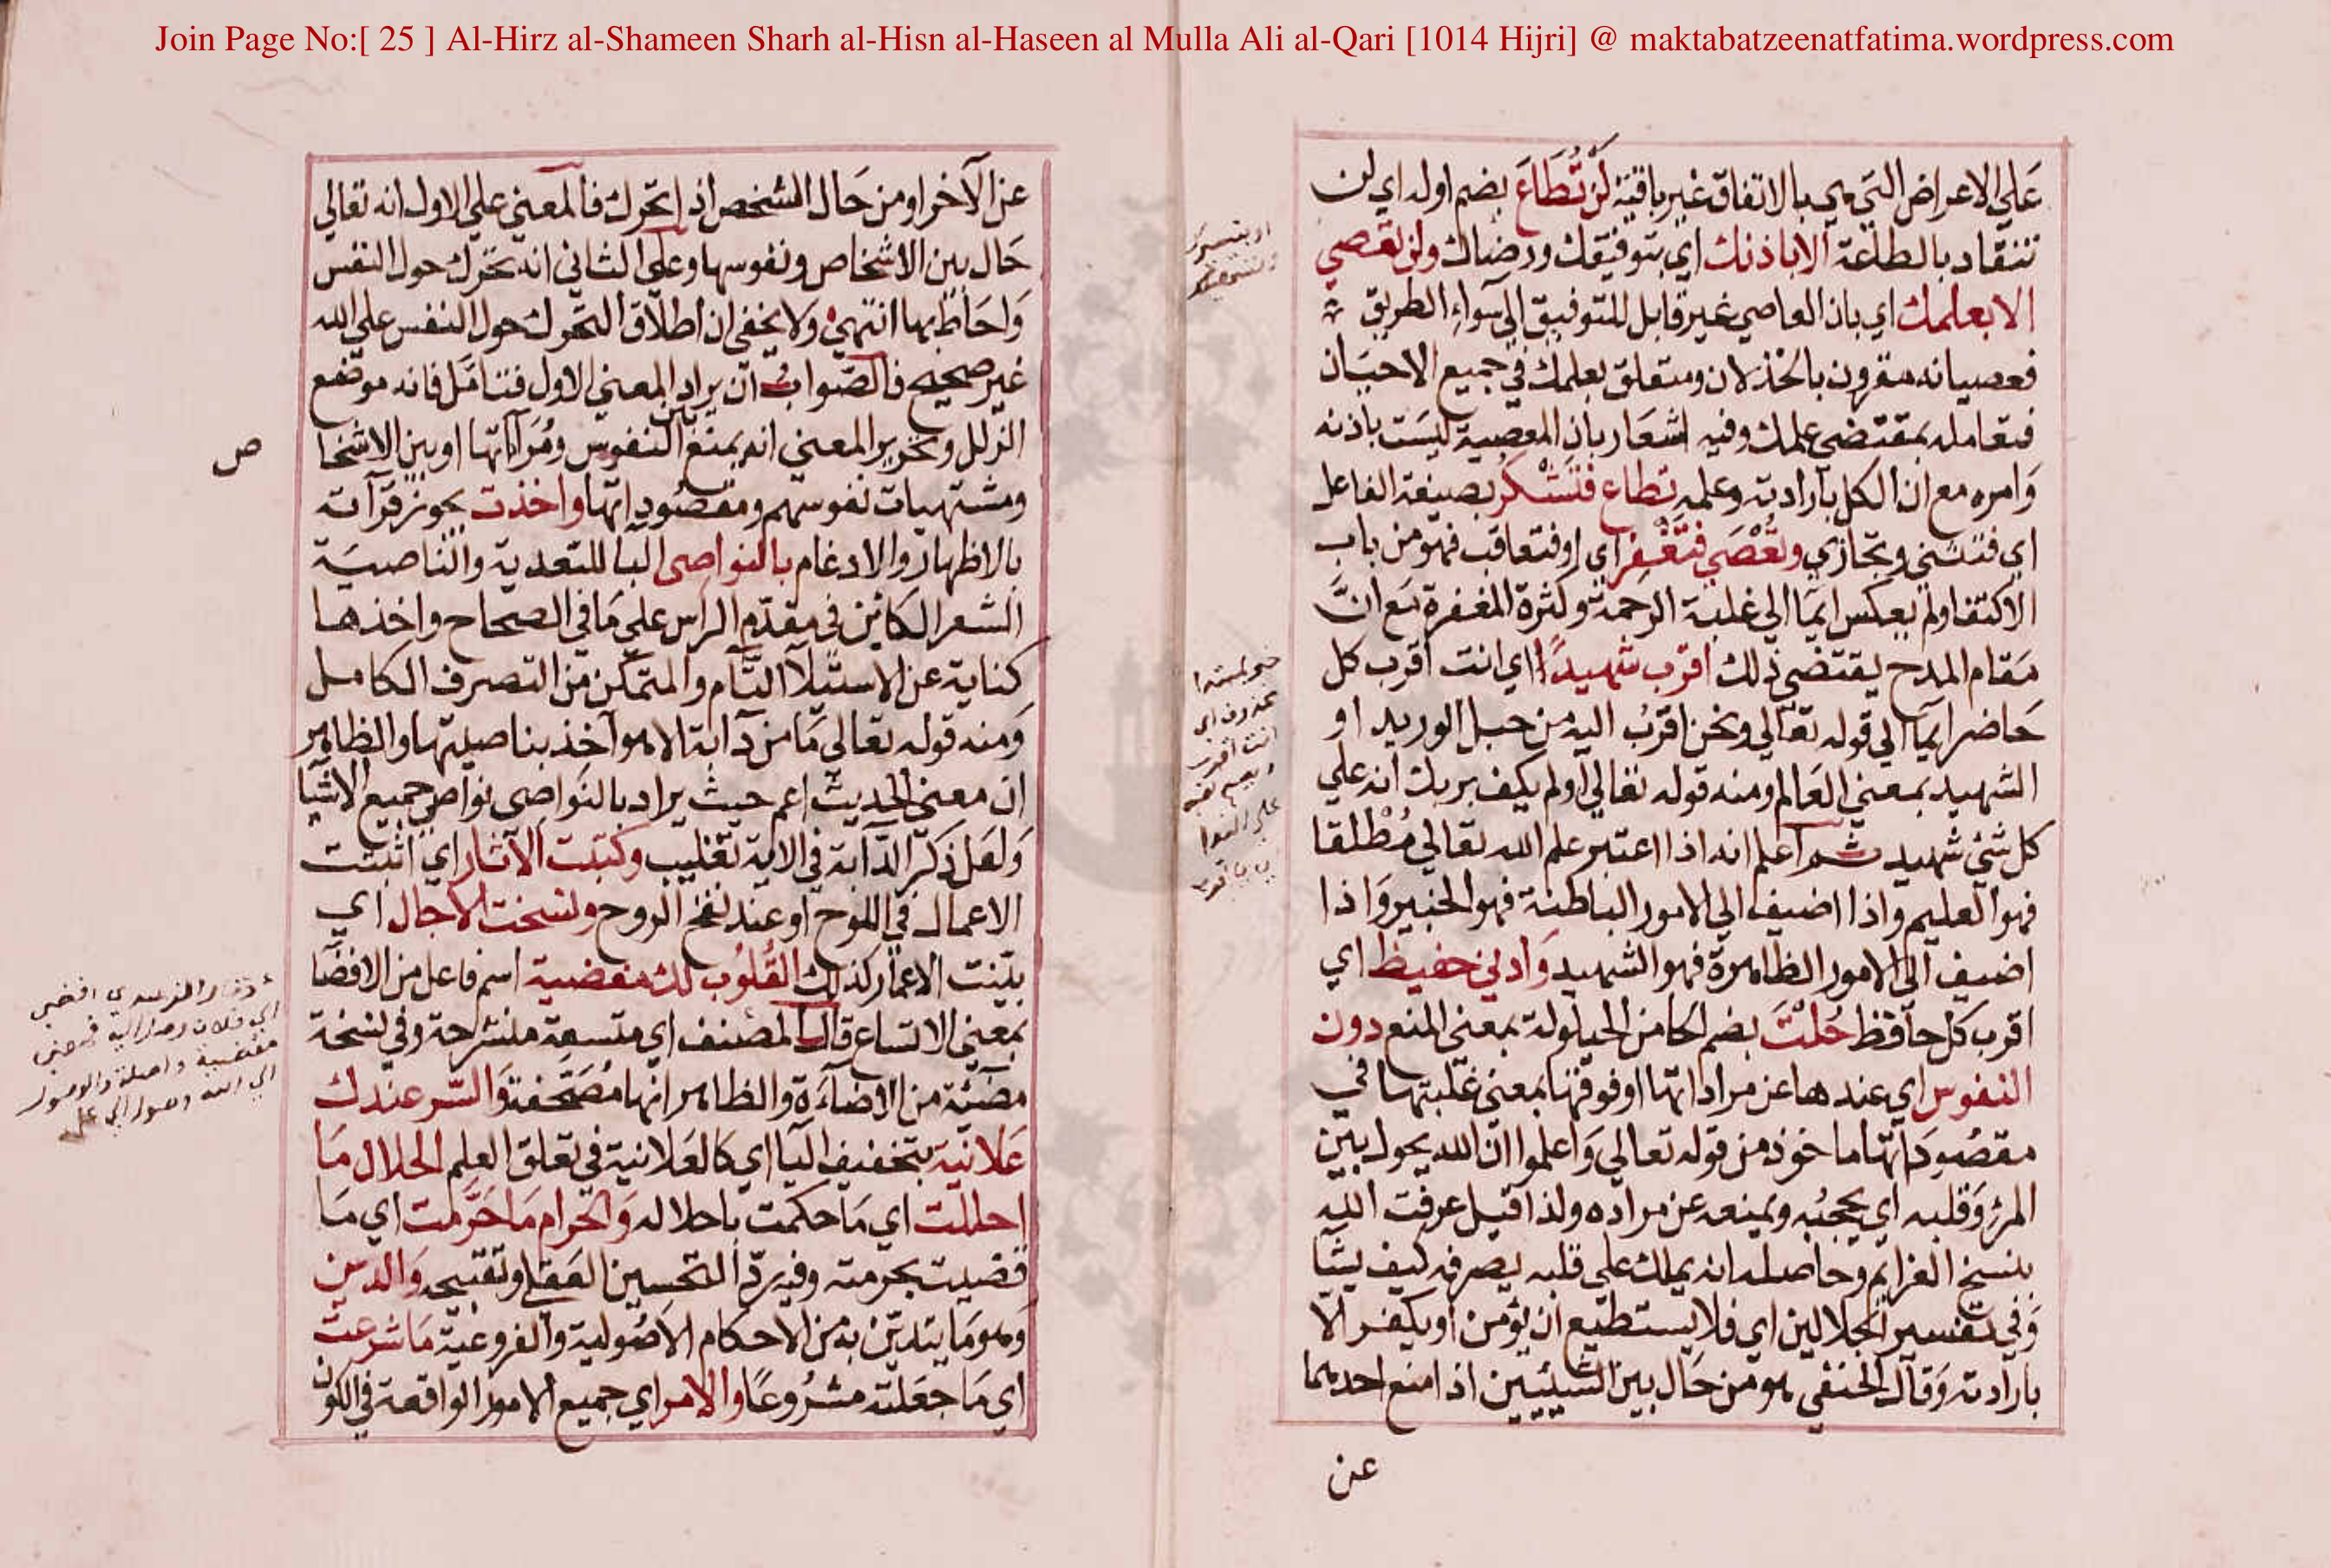 Join Page No:[ 25 ] Al-Hirz al-Shameen Sharh al-Hisn al-Haseen al Mulla Ali al-Qari [1014 Hijri] @ maktabatzeenatfatima.wordpress.com
عَلي الاعراض التي هي بالاتفاق غير باقية لَن تُطَاعَ بضم اوله اي لن
تنقاد بالطاعة الا باذنك اي بتوفيقك ورضاك ولن تعصي
الا بعلمك اي بان العاصي غير قابل للتوفيق الي سَواءِ الطريق
فعصيانه مقرون بالخذلان ومتعلق بعلمك في جميع الاحيَان
فتعامله بمقتضي علمك وفيه اشعَار بان المعصية ليسَت باذنه
وَامره مع ان الكل بارادته وعلمه تطاع فتَشْكر بصيغة الفاعل
اي فتثني وتجازي وتُعْصَي فتَغْفِر اي اوفتعاقب فهو من باب
الاكتفا ولم يعكس ايمَا الي غلبة الرحمة وكثرة المغفرة مَع انَّ
مَقام المدح يقتضي ذلك اقرب شهيدًا اي انت اقرب كل
حَاضر ايمَا الي قوله تعَالي ونحن اقربُ اليه من حبل الوريد او
الشهيد بمعني العَالم ومنه قوله تعَالي اولم يكف بربك انه علي
كل شئ شهيد ثم اعلم انه اذا اعتبر علم الله تعَالي مُطْلقا
فهو العليم واذا اضيف الي الامور الباطنة فهو الخبير وَاذا
اضيف الي الامور الظاهرة فهو الشهيد وَادني حفيظ اي
اقرب كل حافظ حُلْتَ بضم الحا من الحيلولة بمعني المنع دون
النفوس اي عندها عن مراداتها اوفوقها بمعني غلبتها في
مقصُودَاتها ماخوذ من قوله تعالي وَاعلموا ان الله يحول بين
المرْءِ وَقلبه اي يحجبُه ويمنعه عن مراده ولذا قيل عرفت الله
بنسخ العزايم وحاصله انه يملك علي قلبه يصرفه كيف يشَا
وَفي تفسير الجلالين اي فلا يستطيع ان يؤمن او يكفر الا
بارادته وَقال الحنفي هو من حَال بين الشيئين اذا منع احدهما
عن
عن الآخر او من حَال الشخص اذ اتحرك فالمعني علي الاول انه تعَالي
حَال بين الاشخاص ونفوسها وعلي الثاني انه تحرك حول النفس
وَاحَاط بها انتهي ولا يخفي ان اطلاق التحرك حول النفس علي الله
غير صحيح فالصَّوابُ ان يراد المعني الاول فتَامَّل فانه موضع
الزلل وتحرير المعني انه يمنع بين النفوس ومُرَاداتها او بين الاشخا
ص
ومشتهيات نفوسهم ومقصُوداتها واخذت يجوز قرآته
بالاظهار والادغام بالنواصي البا للتعدية والناصيَة
الشعر الكائن في مقدّم الراس علي مَا في الصحاح واخذها
كناية عن الاستيلا التام والتمكن من التصرف الكامل
وَمنه قوله تعالي مَا من دَآبة الا هو آخذ بناصيتها والظاهر
ان معني الحديث اعم حيث يراد بالنَواصي نواصي جميع الاشيَا
وَلعَل ذكر الدَّآبة في الاية تغليب وكتبت الآثار اي اثبتت
الاعمال في اللوح او عند نفخ الروح ونسخت الآجال اي
بيّنت الاعمار كذلك القُلُوب لك مفضية اسم فاعل من الافضَا
بمعني الاتساع قال المصنف اي متسعة منشرحة وفي نسخة
مضئية من الاضاءَة والظاهر انها مُصَحَّفة وَالسّر عندك
عَلانيَة بتخفيف اليَا اي كالعَلانية في تعلق العلم الحلال مَا
احللت اي مَا حكمت باحلاله وَالحرام مَا حَرَّمت اي مَا
قضيت بحرمته وفيه ردّ التحسين العقلي وتقبيحه وَالدين
وَهو مَا يتديّن به من الاحكام الاصُولية والفروعيّة مَا شرعت
اي مَا جعَلته مشرُوعًا والامر اي جميع الامور الواقعة في الكون